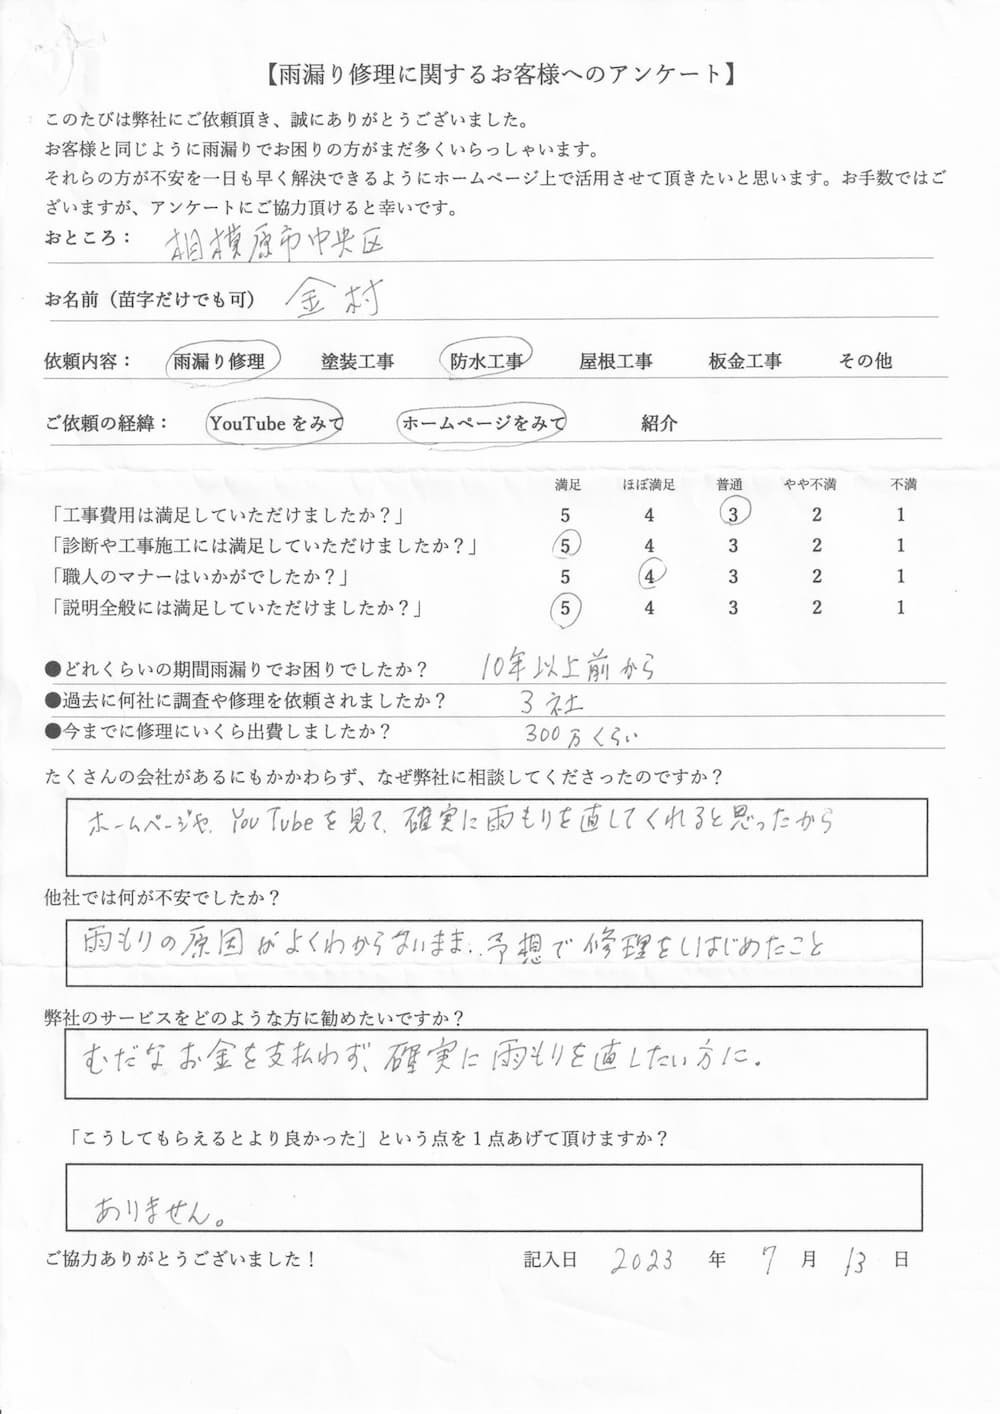 【雨漏り修理に関するお客様へのアンケート】
このたびは弊社にご依頼頂き、誠にありがとうございました。
お客様と同じように雨漏りでお困りの方がまだ多くいらっしゃいます。
それらの方が不安を一日も早く解決できるようにホームページ上で活用させて頂きたいと思います。お手数ではご
ざいますが、アンケートにご協力頂けると幸いです。
おところ： 相模原市中央区
お名前（苗字だけでも可） 金村
依頼内容： 雨漏り修理 塗装工事 防水工事 屋根工事 板金工事 その他
ご依頼の経緯： YouTubeをみて ホームページをみて 紹介
満足 ほぼ満足 普通 やや不満 不満
「工事費用は満足していただけましたか？」 5 4 3 2 1
「診断や工事施工には満足していただけましたか？」 5 4 3 2 1
「職人のマナーはいかがでしたか？」 5 4 3 2 1
「説明全般には満足していただけましたか？」 5 4 3 2 1
●どれくらいの期間雨漏りでお困りでしたか？ 10年以上前から
●過去に何社に調査や修理を依頼されましたか？ 3社
●今までに修理にいくら出費しましたか？ 300万くらい
たくさんの会社があるにもかかわらず、なぜ弊社に相談してくださったのですか？
ホームページや、YouTubeを見て、確実に雨もりを直してくれると思ったから
他社では何が不安でしたか？
雨もりの原因がよくわからないまま、予想で修理をしはじめたこと
弊社のサービスをどのような方に勧めたいですか？
むだなお金を支払わず、確実に雨もりを直したい方に。
「こうしてもらえるとより良かった」という点を1点あげて頂けますか？
ありません。
ご協力ありがとうございました！ 記入日 2023 年 7 月 13 日